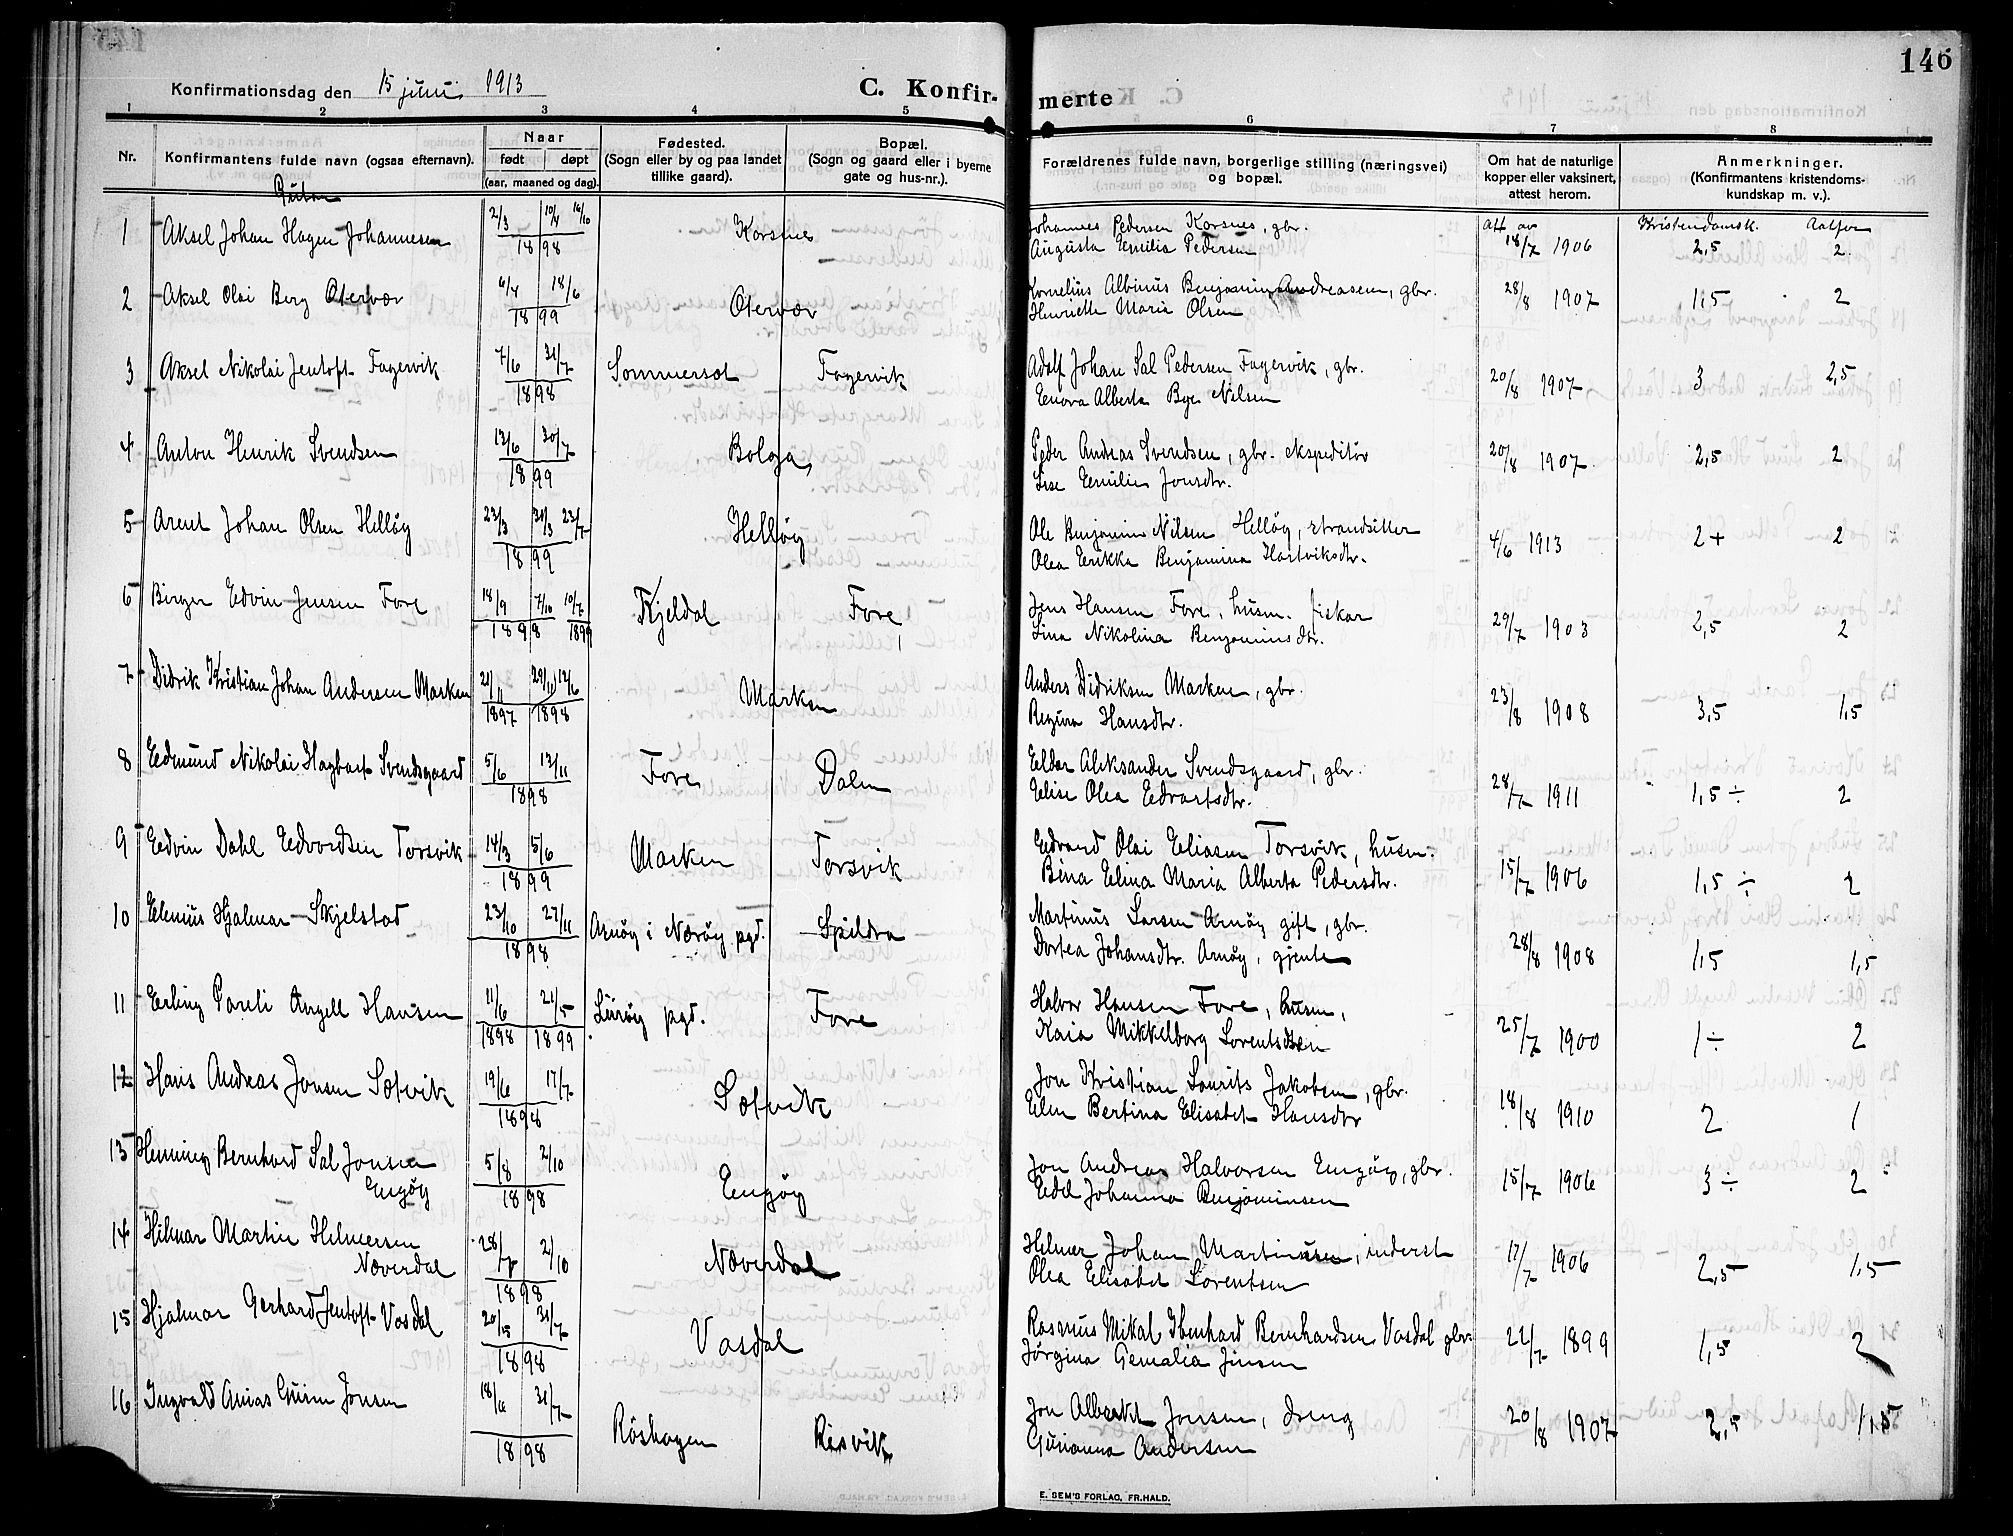 146
Konfirmationsdag den 15 juni 1913
C. Konfirmerte
1 2 3 4 5 6 7 8
Nr. Konfirmantens fulde navn (ogsaa efternavn). Naar født døpt (aar, maaned og dag). Fødested. (Sogn eller by og paa landet tillike gaard). Bopæl. (Sogn og gaard eller i byerne gate og hus-nr.). Forældrenes fulde navn, borgerlige stilling (næringsvei) og bopæl. Om hat de naturlige kopper eller vaksinert, attest herom. Anmerkninger. (Konfirmantens kristendomskundskap m. v.).
Gutter
1 Aksel Johan Hagen Johannesen 2/3 10/4 16/10 1898 Korsnes Johannes Pedersen Korsnes, gbr. Att av 18/7 1906 Kristendomsk. 2,5 Aatfør 2
Augusta Emilia Pedersen
2 Aksel Olai Berg Otervær 6/4 18/6 1899 Otervær Kornelius Albinus Benjamin Andreasen, gbr. 28/8 1907 1,5 2
Henriette Maria Olsen
3 Aksel Nikolai Jentoft Fagervik 7/6 31/7 1898 Sommersot Fagervik Adolf Johan Sal Pedersen Fagervik, gbr. 20/8 1907 3 2,5
Enora Alberta Bye Nilsen
4 Anton Henrik Svendsen 13/6 30/7 1899 Bolga Peder Andreas Svendsen, gbr. ekspeditør 20/8 1907 2,5 2
Lise Emilie Jonsdtr.
5 Arent Johan Olsen Helløy 23/3 31/3 23/7 1899 Helløy Ole Benjamin Nilsen Helløy, strandsitter 4/6 1913 2+ 2
Olea Erikka Benjamina Hartviksdtr.
6 Birger Edvin Jensen Fore 18/9 7/10 10/7 1898 1899 Kjeldal Fore Jens Hansen Fore, husm. fisker 29/7 1903 2,5 2
Lina Nikolina Benjaminsdtr.
7 Didrik Kristian Johan Andersen Marken 21/11 29/11 12/6 1897 1898 Marken Anders Didriksen Marken, gbr. 23/8 1908 3,5 1,5
Regina Hansdtr.
8 Edmund Nikolai Hagbart Svendsgaard 5/6 13/11 1898 Fore Dalen Eldar Aleksander Svendsgaard, gbr. 28/7 1911 1,5 ÷ 2
Elise Olea Edvartsdtr.
9 Edvin Dahl Edvardsen Torsvik 14/3 5/6 1899 Marken Torsvik Edvard Olai Eliasen Torsvik, husm. 15/7 1906 1,5 ÷ 2
Bina Elina Maria Alberta Pedersdtr.
10 Elenius Hjalmar Skjelstad 23/10 27/11 1898 Arnøy i Nærøy pgd. Spildra Martinus Larsen Arnøy gift, gbr. 28/8 1908 1,5 1,5
Dortea Johansdtr. Arnøy, gjente
11 Erling Pareli Angell Hansen 11/6 21/5 1898 1899 Lurøy pgd. Fore Halvor Hansen Fore, husm, 25/7 1900 1 ÷ 2
Kaia Mikkelborg Lorentsen
12 Hans Andreas Jonsen Sætvik 19/6 17/7 1898 Sætvik Jon Kristian Laurits Jakobsen, gbr. 18/8 1910 2 1
Elen Bertina Elisabet Hansdtr
13 Henning Bernhard Sal Jonsen Engøy 5/8 2/10 1898 Engøy Jon Andreas Halvorsen Engøy, gbr. 15/7 1906 3 ÷ 2
Edel Johanna Benjaminsen
14 Hilmar Martin Helmersen Næverdal 28/7 2/10 1898 Næverdal Helmer Johan Martinusen, inderst 17/7 1906 2,5 1,5
Olea Elisabet Lorentsen
15 Hjalmar Gerhard Jentoft Vasdal 20/15 31/7 1898 Vasdal Rasmus Mikal Ibenhard Bernhardsen Vasdal gbr. 22/7 1899 1,5 2
Jørgina Gemalia Jensen
16 Ingvald Anias Guren Jonsen 18/6 31/7 1898 Røshagen Risvik Jon Albert Jonsen, dreng 20/8 1907 2,5 1,5
Gurianna Andersen
E. SEM'S FORLAG, FR.HALD.